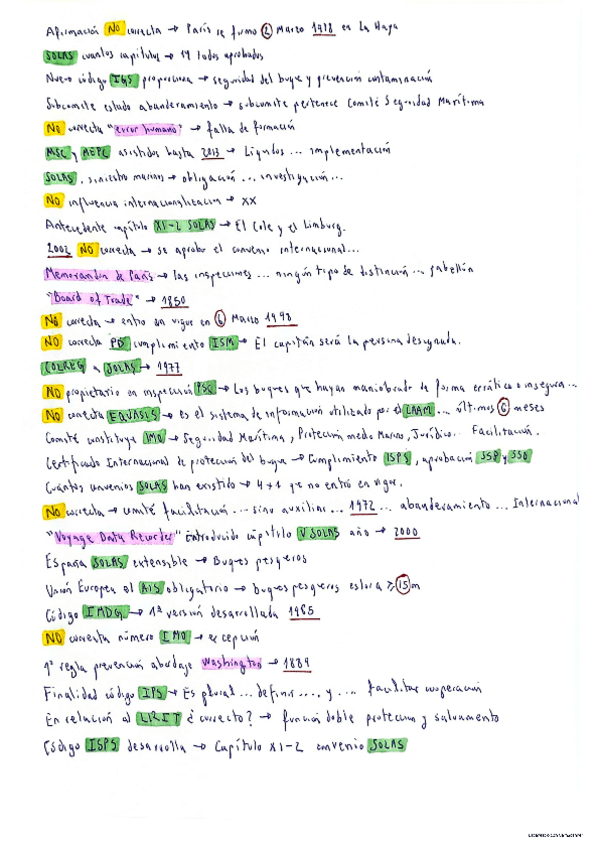 Afirmación NO correcta → París se formo 2 Marzo 1978 en La Haya
SOLAS cuantos capítulos → 14 todos aprobados
Nuevo código IGS proporciona → seguridad del buque y prevención contaminación
Subcomite estado abanderamiento → subcomite pertenece Comité Seguridad Marítima
No correcta "error humano" → falla de formación
MSC y MEPC asistidos hasta 2013 → Líquidos ... implementación
SOLAS, siniestro marinos → obligación ... investigación ...
NO influencia internacionalizacion → XX
Antecedente capítulo XI-2 SOLAS → El Cole y el Limburg.
2002 NO correcta → se aprobar el convenio internacional...
Memorandin de París → las inspecciones ... ningún tipo de distinción ... pabellón
"Board of Trade" → 1850
No correcta → entro en vigor en 6 Marzo 1998
NO correcta PD cumplimiento ISM → El capitán será la persona designada.
COLREG a SOLAS → 1977
NO propietario en inspección PSC → Los buques que hayan maniobrado de forma errática o insegura ...
No correcta EQUASIS → es el sistema de información utilizado por el ... últimos 6 meses
Comité constituye IMO → Seguridad Marítima, Protección medio Marino, Jurídico.. Facilitación.
Certificado Internacional de protección del buque → Cumplimiento ISPS, aprobación SSP y SSO
Cuántos convenios SOLAS han existido → 4 + 1 que no entró en vigor.
NO correcta → comité facilitación ... sino auxiliar ... 1972 ... abanderamiento ... Internacional
"Voyage Data Recorder" introducido capitulo V SOLAS año → 2000
España SOLAS extensible → Buques pesqueros
Unión Europea el AIS obligatorio → buques pesqueros eslora ≥ 15 m
Código IMDG → 1ª versión desarrollada 1965
NO correcta número IMO → excepción
1ª regla prevención abordaje Washington → 1889
Finalidad código IPS → Es plural ... definir .... y ... facilitar cooperación
En relación al LRIT ¿correcto? → función doble protección y salvamento
Código ISPS desarrolla → Capítulo XI-2 convenio SOLAS